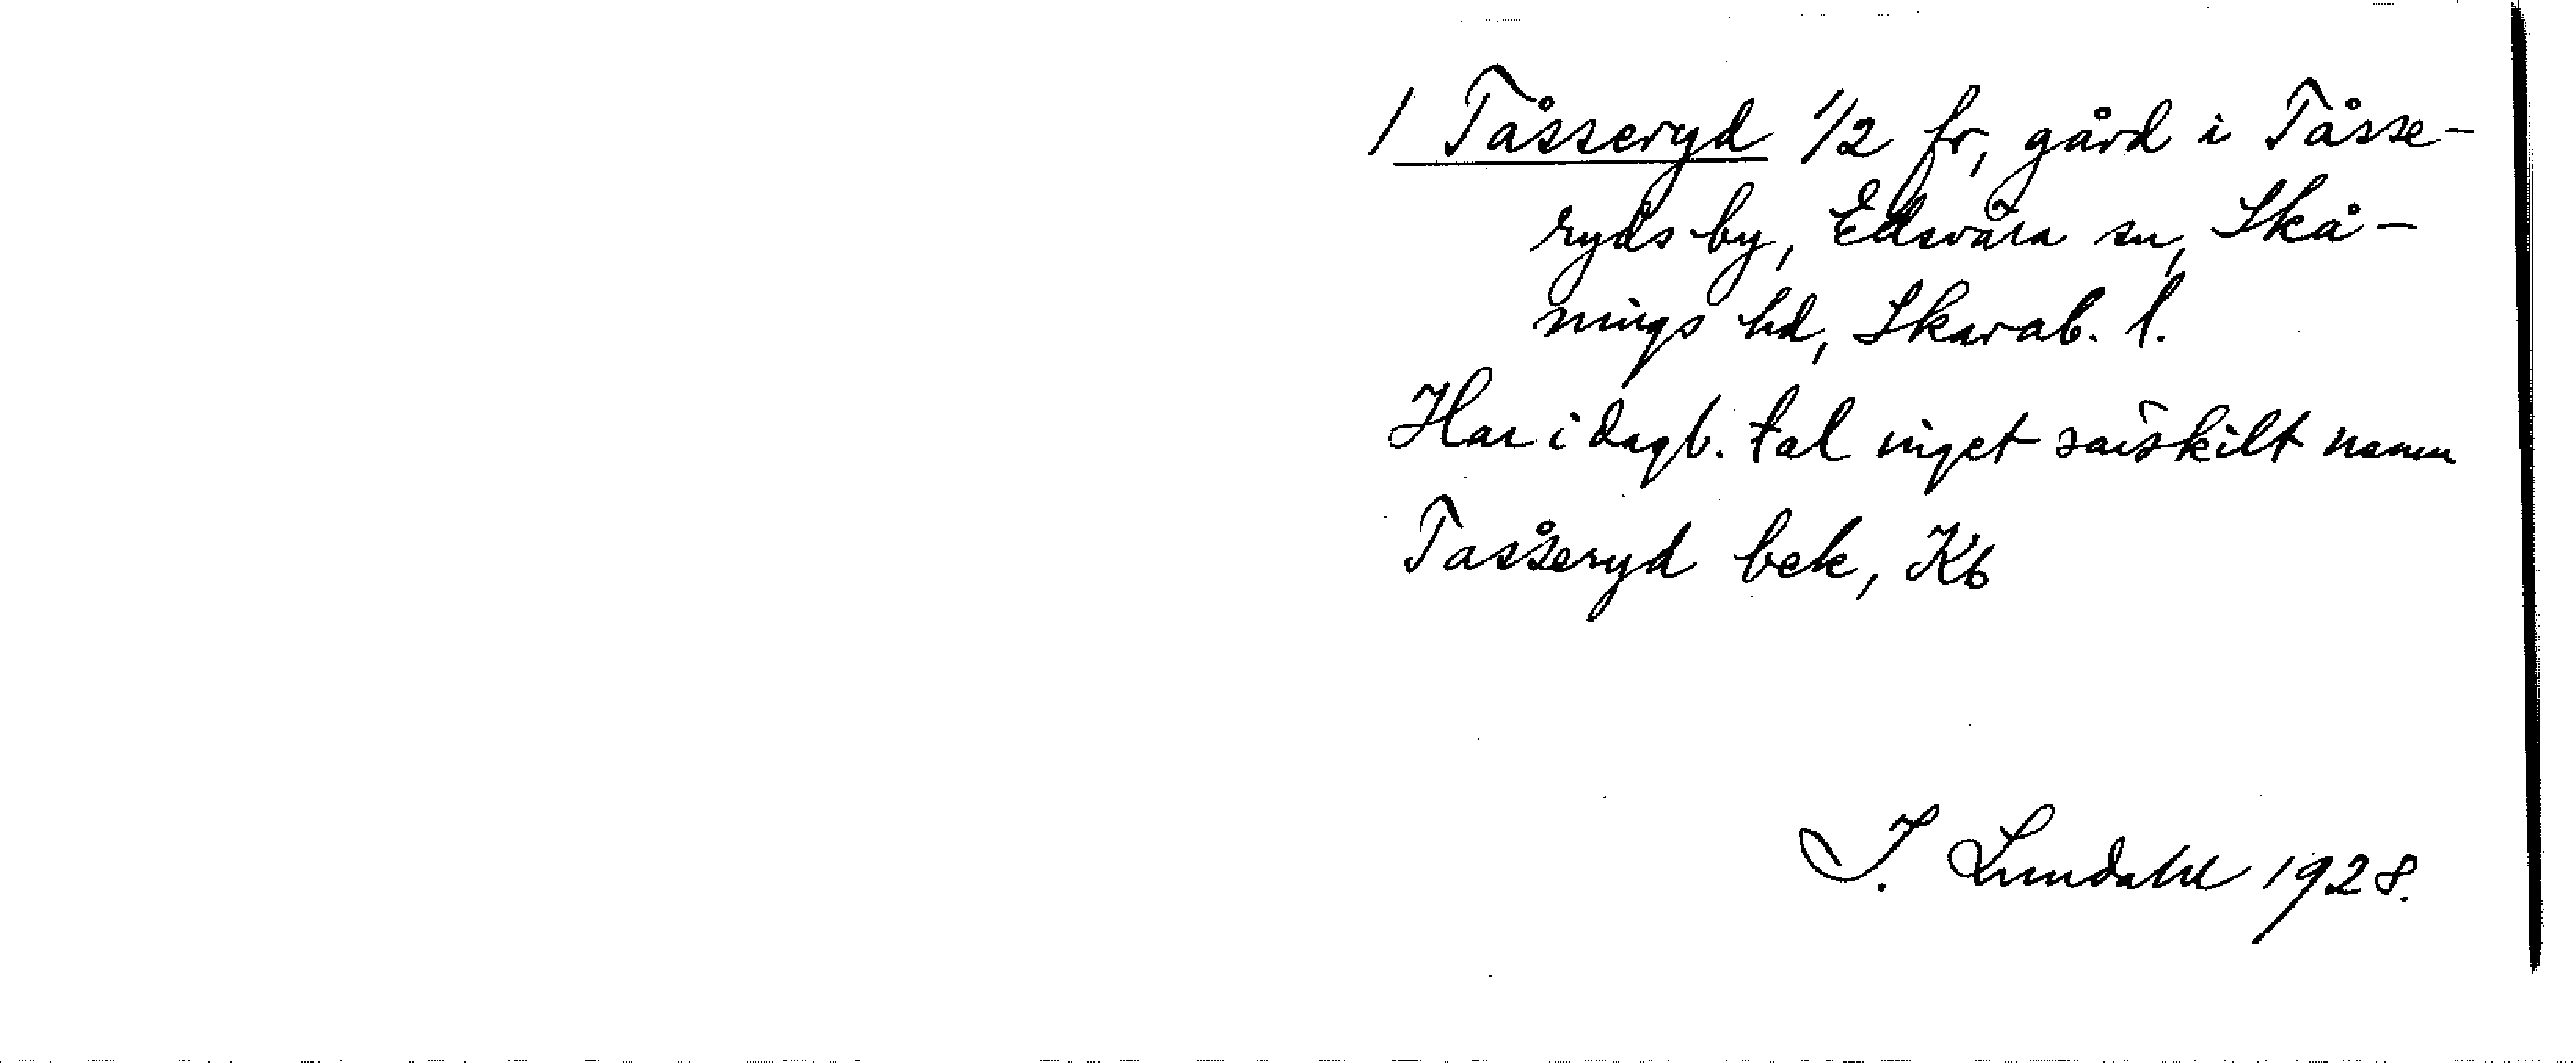 1 Tåsseryd 1/2 fr, gård i Tåsse-
ryds by, Edsvära sn, Skå-
nings hd, Skarab. l.
Har i dagb. tal inget särskilt namn
Tasseryd bek, Kb
I. Lundahl 1928.